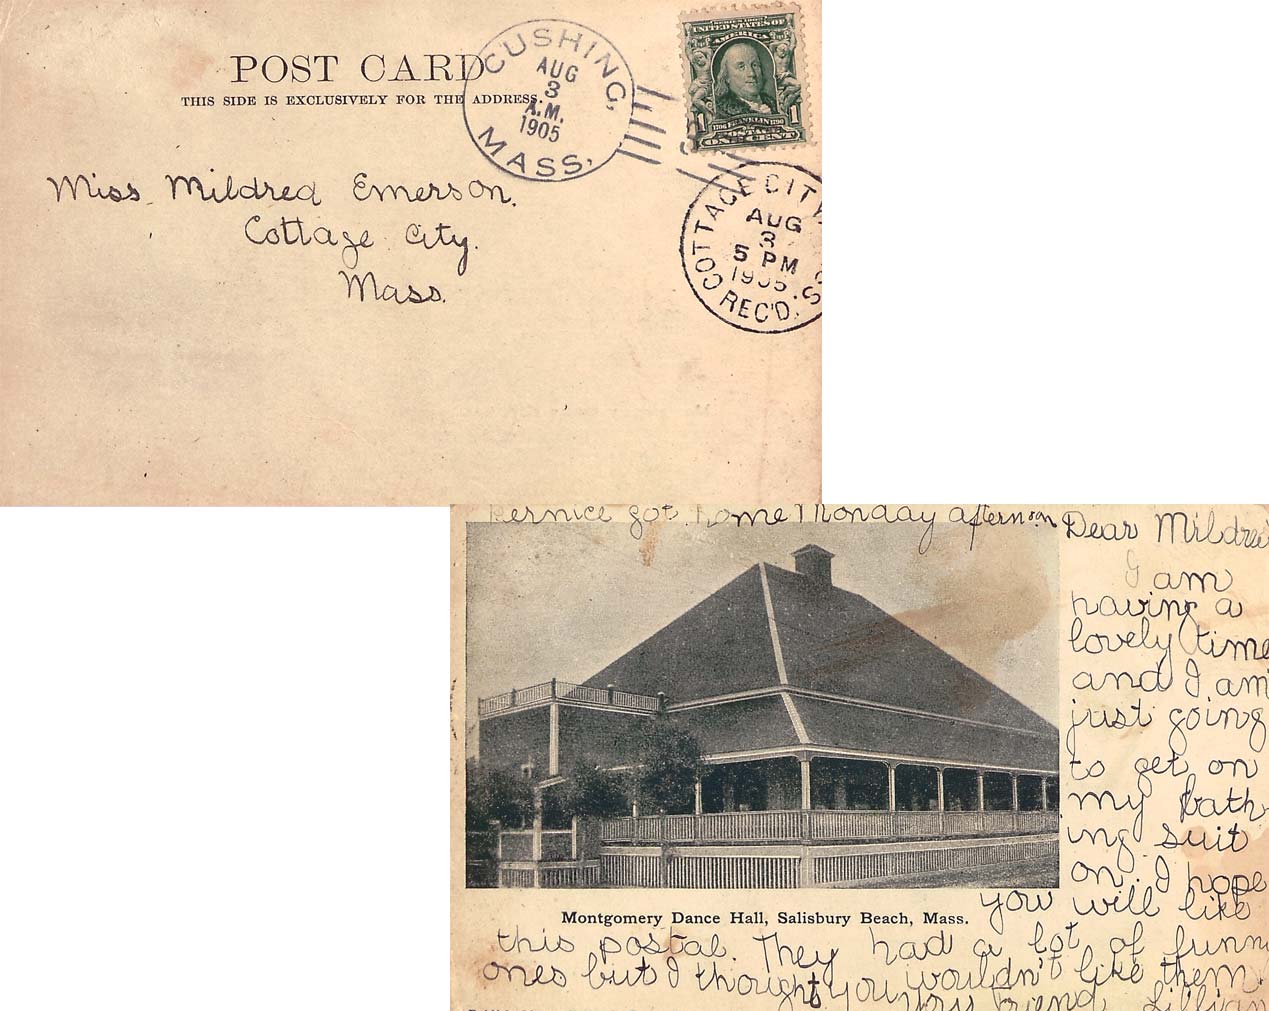 POST CARD
THIS SIDE IS EXCLUSIVELY FOR THE ADDRESS.
CUSHING,
AUG
3
A.M.
1905
MASS.
SERIES 1902
UNITED STATES OF
AMERICA
1706 FRANKLIN 1790
1 POSTAGE 1
ONE CENT
COTTAGE CITY
AUG
3
5 PM
1905
REC'D.
Miss Mildred Emerson.
Cottage City.
Mass.
Bernice got home Monday afternoon
Dear Mildred
I am
having a
lovely time
and I am
just going
to get on
my bath-
ing suit
on. I hope
you will like
this postal. They had a lot of funny
ones but I thought you wouldn't like them.
Your friend Lillian
Montgomery Dance Hall, Salisbury Beach, Mass.